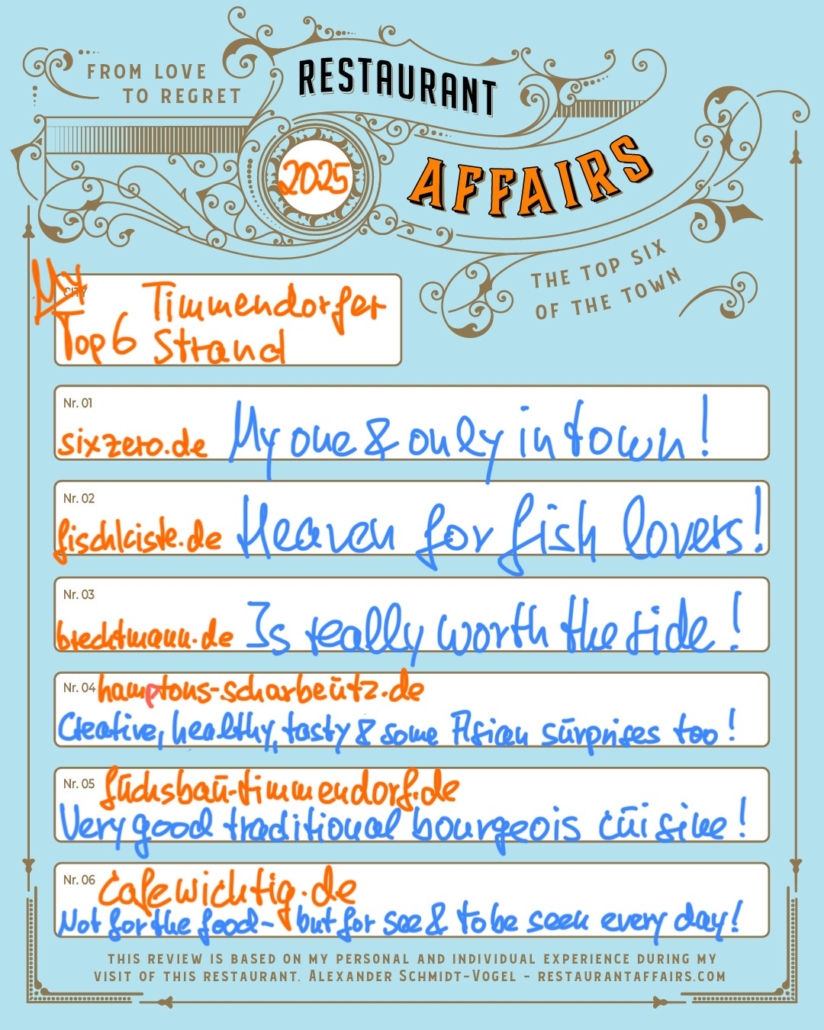 FROM LOVE
TO REGRET
RESTAURANT
2025
AFFAIRS
THE TOP SIX
OF THE TOWN
My
CITY
Top 6 Timmendorfer
Strand
Nr. 01
sixzero.de My one & only in town!
Nr. 02
fischkiste.de Heaven for fish lovers!
Nr. 03
brechtmann.de Is really worth the ride!
Nr. 04 hamptons-scharbeutz.de
Creative, healthy, tasty & some Asian surprises too!
Nr. 05 fuchsbau-timmendorf.de
Very good traditional bourgeois cuisine!
Nr. 06 cafewichtig.de
Not for the food- but for see & to be seen every day!
THIS REVIEW IS BASED ON MY PERSONAL AND INDIVIDUAL EXPERIENCE DURING MY
VISIT OF THIS RESTAURANT. ALEXANDER SCHMIDT-VOGEL – RESTAURANTAFFAIRS.COM